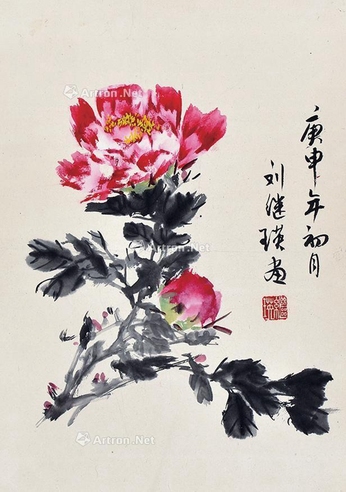 庚申年初月
刘继瑛画
Artron.Net
Artron.Net
Artron.Net